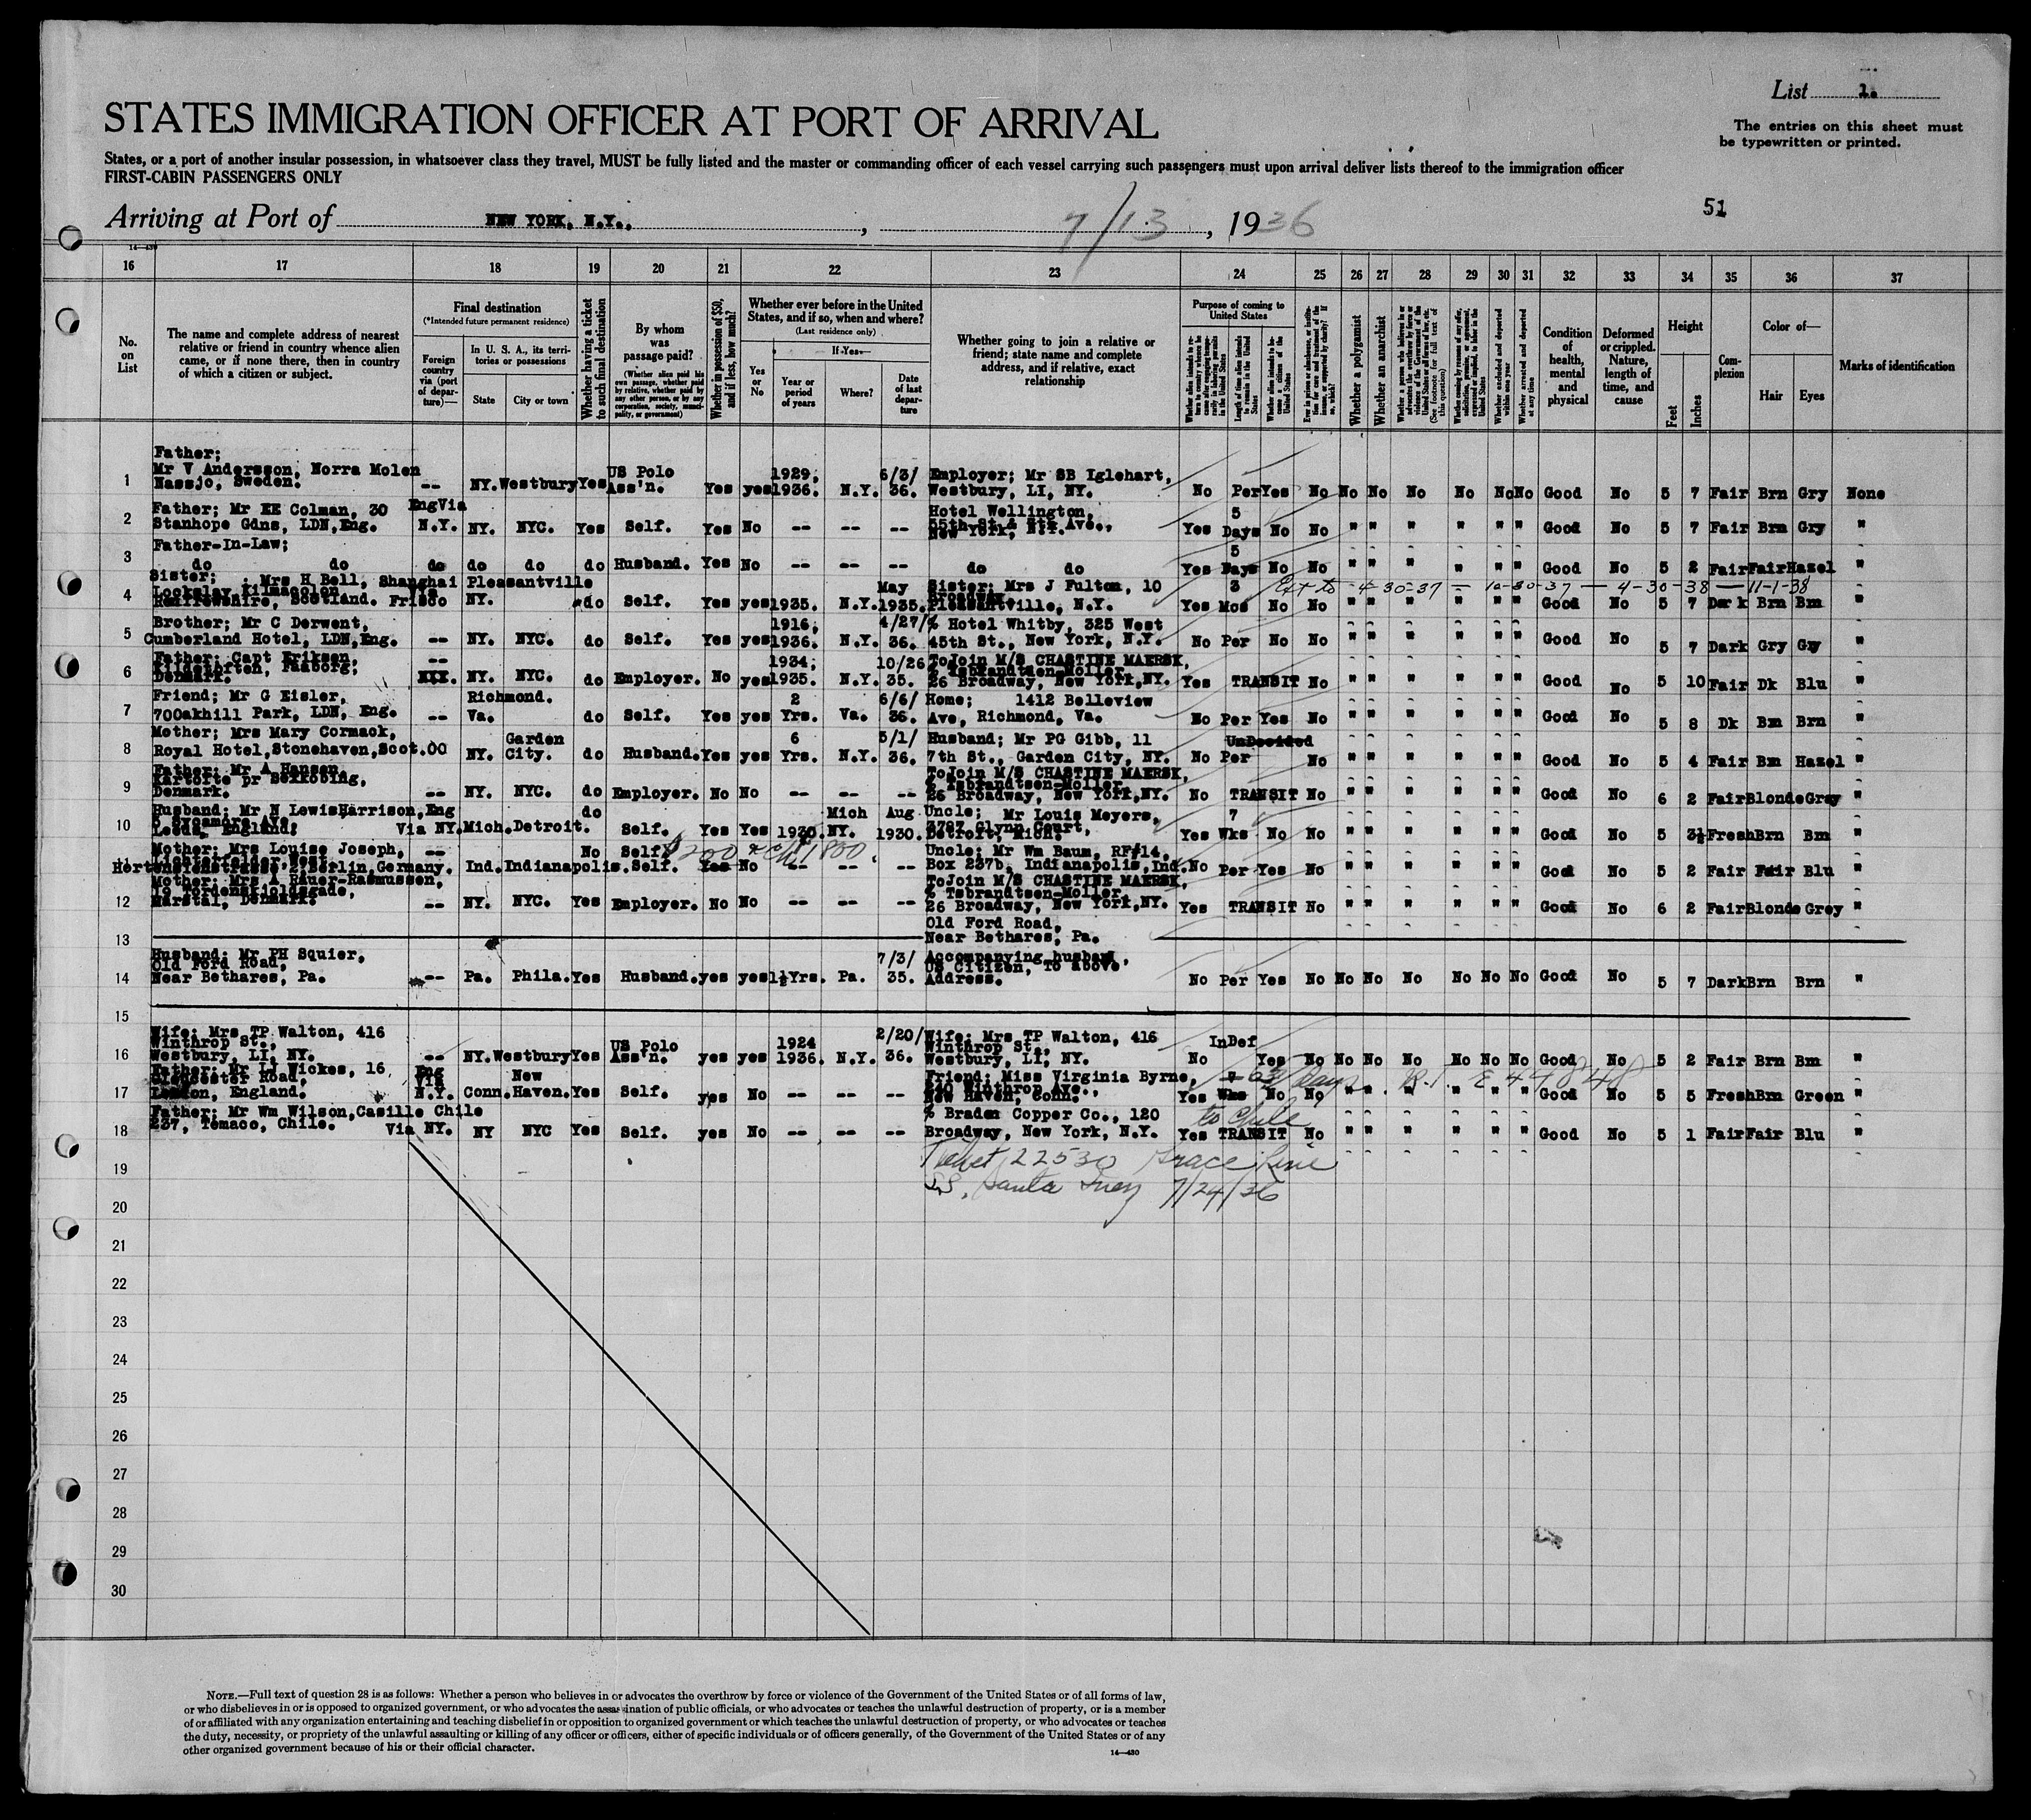 List 1.
STATES IMMIGRATION OFFICER AT PORT OF ARRIVAL
The entries on this sheet must
be typewritten or printed.
States, or a port of another insular possession, in whatsoever class they travel, MUST be fully listed and the master or commanding officer of each vessel carrying such passengers must upon arrival deliver lists thereof to the immigration officer
FIRST-CABIN PASSENGERS ONLY
Arriving at Port of NEW YORK, N.Y., , 7/13, 1936
51
14—430
16 17 18 19 20 21 22 23 24 25 26 27 28 29 30 31 32 33 34 35 36 37
No. on List
The name and complete address of nearest
relative or friend in country whence alien
came, or if none there, then in country
of which a citizen or subject.
Final destination
(*Intended future permanent residence)
Foreign country via (port of departure)—
In U. S. A., its territories or possessions
State
City or town
Whether having a ticket to such final destination
By whom was passage paid?
(Whether alien paid his own passage, whether paid by relative, whether paid by any other person, or by any corporation, society, municipality, or government)
Whether in possession of $50, and if less, how much?
Whether ever before in the United States, and if so, when and where?
(Last residence only)
If Yes—
Yes or No
Year or period of years
Where?
Date of last departure
Whether going to join a relative or
friend; state name and complete
address, and if relative, exact
relationship
Purpose of coming to United States
Length of time alien intends to remain in the United States
Whether alien intends to become a citizen of the United States
Whether a polygamist
Whether an anarchist
Whether arrested and deported at any time
Condition of health, mental and physical
Deformed or crippled. Nature, length of time, and cause
Height
Feet
Inches
Complexion
Color of—
Hair
Eyes
Marks of identification
Father;
1 Mr V Andersson, Norra Molen
Nassjo, Sweden. -- NY. Westbury Yes US Polo Ass'n. Yes yes 1929; 1936. N.Y. 6/3/36. Employer; Mr SB Iglehart, Westbury, LI, NY. No Per Yes No No No No No No No Good No 5 7 Fair Brn Gry None
2 Father; Mr EE Colman, 30
Stanhope Gdns, LDN, Eng. Eng Via N.Y. NY. NYC. Yes Self. Yes No -- -- -- Hotel Wellington, 55th St & 7th Ave., New York, N.Y. Yes 5 Days No No " " " " " " Good No 5 7 Fair Brn Gry "
3 Father-In-Law;
do do do do do do Husband. Yes No -- -- -- do do Yes 5 Days No No " " " " " " Good No 5 2 Fair Fair Hazel "
Ext to 4-30-37 — 10-30-37 — 4-30-38 — 11-1-38
4 Sister; Mrs H Bell, Shanghai
Lockslay Kilmacolm
Renfrewshire, Scotland. Via Frisco NY. Pleasantville do Self. Yes yes 1935. N.Y. May 1935. Sister; Mrs J Fulton, 10 Broadway, Pleasantville, N.Y. Yes 3 Mos No No " " " " " " Good No 5 7 Dark Brn Brn "
5 Brother; Mr C Derwent,
Cumberland Hotel, LDN, Eng. -- NY. NYC. do Self. Yes yes 1916; 1936. N.Y. 4/27/36. % Hotel Whitby, 325 West 45th St., New York, N.Y. No Per No No " " " " " " Good No 5 7 Dark Gry Gry "
6 Father; Capt Eriksen,
Kildetoften, Faaborg,
Denmark. -- NY. NYC. do Employer. No yes 1934; 1935. N.Y. 10/26 35. ToJoin M/S CHASTINE MAERSK, % Isbrandtsen-Moller, 26 Broadway, New York, NY. Yes TRANSIT No " " " " " " Good No 5 10 Fair Dk Blu "
7 Friend; Mr G Eisler,
70Oakhill Park, LDN, Eng. -- Va. Richmond. do Self. Yes yes 2 Yrs. Va. 6/6/36. Home; 1412 Belleview Ave, Richmond, Va. No Per Yes No " " " " " " Good No 5 8 Dk Brn Brn "
8 Mother; Mrs Mary Cormack,
Royal Hotel, Stonehaven, Scot.OO NY. Garden City. do Husband. Yes yes 6 Yrs. N.Y. 5/1/36. Husband; Mr PG Gibb, 11 7th St., Garden City, NY. No Per UnDecided No " " " " " " Good No 5 4 Fair Brn Hazel "
9 Father; Mr A Hansen,
Denmark. -- NY. NYC. do Employer. No No -- -- -- ToJoin M/S CHASTINE MAERSK, % Isbrandtsen-Moller, 26 Broadway, New York, NY. No TRANSIT No " " " " " " Good No 6 2 Fair Blonde Grey "
10 Husband; Mr N Lewis Harrison, Eng
5 Sycamore Ave,
Leeds, England; Via NY. Mich. Detroit. do Self. Yes Yes 1930. Mich NY. Aug 1930. Uncle; Mr Louis Meyers, 3787 Glynn Court, Detroit, Mich. Yes 7 Wks No No " " " " " " Good No 5 3½ Fresh Brn Brn "
11 Mother; Mrs Louise Joseph,
Lichterfelder West,
Hortensienstrasse 2, Berlin, Germany. -- Ind. Indianapolis. No Self. Self. $200 Yes No -- -- -- Uncle; Mr Wm Baum, RF#14, Box 237b, Indianapolis, Ind. No Per Yes No " " " " " " Good No 5 2 Fair Fair Blu "
12 Mother; Mrs A Rauer-Rasmussen,
19 Tordenskjoldsgade,
Marstal, Denmark. -- NY. NYC. Yes Employer. No No -- -- -- ToJoin M/S CHASTINE MAERSK, % Isbrandtsen-Moller, 26 Broadway, New York, NY. Yes TRANSIT No " " " " " " Good No 6 2 Fair Blonde Grey "
13 Old Ford Road,
Near Bethares, Pa.
14 Husband; Mr PH Squier,
Old Ford Road,
Near Bethares, Pa. -- Pa. Phila. Yes Husband. yes yes 1½Yrs. Pa. 7/3/35. Accompanying husband, US Citizen, To above Address. No Per Yes No No No No No No No Good No 5 7 Dark Brn Brn "
15
16 Wife; Mrs TP Walton, 416
Winthrop St.,
Westbury, LI, NY. -- NY. Westbury Yes US Polo Ass'n. yes yes 1924 1936. N.Y. 2/20/36. Wife; Mrs TP Walton, 416 Winthrop St., Westbury, LI, NY. No InDef Yes No No No No No No No Good No 5 2 Fair Brn Brn "
17 Father; Mr LJ Wickes, 16,
Gloucester Road,
London, England. Eng Via N.Y. Conn. New Haven. Yes Self. yes No -- -- -- Friend; Miss Virginia Byrne, 240 Winthrop Ave., New Haven, Conn. Yes Wks No No " " " " " " Good No 5 5 Fresh Brn Green "
18 Father; Mr Wm Wilson, Casille Chile
237, Temaco, Chile. Via NY. NY NYC Yes Self. yes No -- -- -- % Braden Copper Co., 120 Broadway, New York, N.Y. Yes to Chile TRANSIT No " " " " " " Good No 5 1 Fair Fair Blu "
19 Ticket 22530 Grace Line
S.S. Santa Inez 7/24/36
20
21
22
23
24
25
26
27
28
29
30
NOTE.—Full text of question 28 is as follows: Whether a person who believes in or advocates the overthrow by force or violence of the Government of the United States or of all forms of law,
or who disbelieves in or is opposed to organized government, or who advocates the assassination of public officials, or who advocates or teaches the unlawful destruction of property, or is a member
of or affiliated with any organization entertaining and teaching disbelief in or opposition to organized government or which teaches the unlawful destruction of property, or who advocates or teaches
the duty, necessity, or propriety of the unlawful assaulting or killing of any officer or officers, either of specific individuals or of officers generally, of the Government of the United States or of any
other organized government because of his or their official character.
14—430